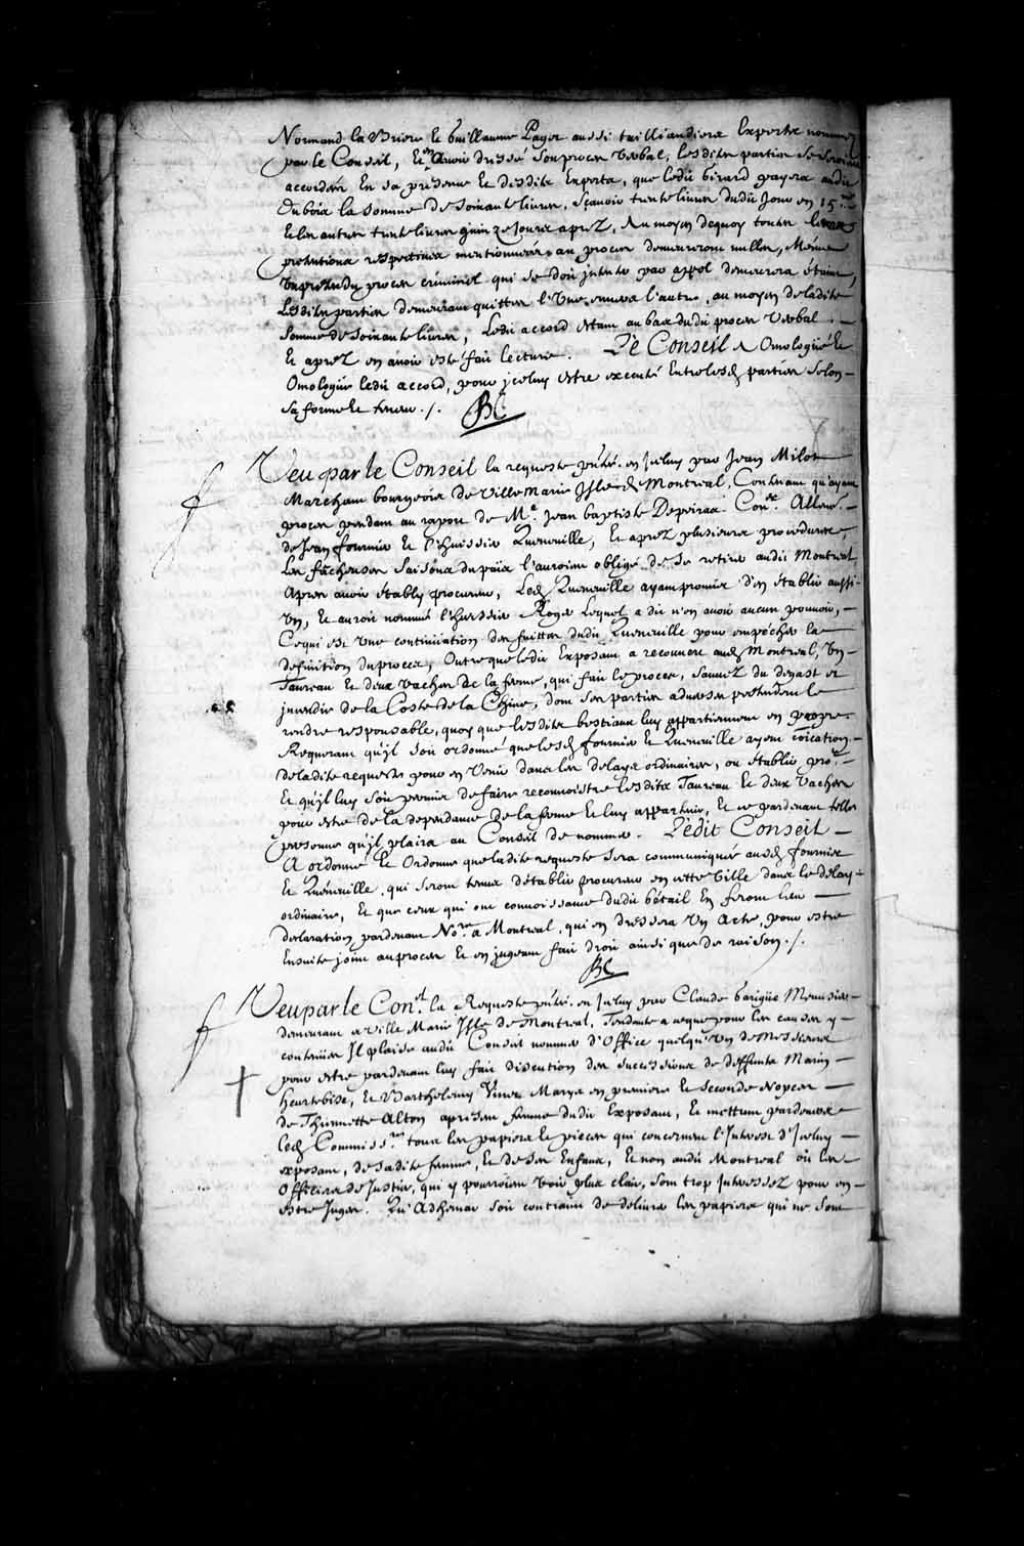 Normand la Briere et Guillaume Pager aussi tailliandiers Experts nommez
par le Conseil, et en avoir dressé son procez verbal, lesdites parties se seroient
accordées En sa presence et desdits Experts, que ledit Girard payera audit
Dubois la somme de soixante livres, sçavoir trente livres dudit Jour en 15ne
et les autres trente livres quinze Jours aprez, Au moyen dequoy toutes leurs
pretentions respectives mentionnées au procez demeureront nulles, Mesme
lesdites parties demeurant quittes l'Une envers l'autre, au moyen de ladite
somme de soixante livres, ledit accord estant au bas dudit procez Verbal.
Et aprez en avoir esté fait lecture. Le Conseil A Omologué et
Omologue ledit accord, pour iceluy estre executé Entre lesd parties selon
sa forme et teneur ./. BC
Veu par le Conseil la requeste pñtée en Iceluy par Jean Milot
Marchand bourgeois de Ville Marie Isle de Montreal, Contenant qu'ayant
procez pendant au raport de Me. Jean baptiste Depeiras Conr.
de Jean fournier et l'huissier Quenneville, Et aprez plusieurs procedures,
Les fâcheuses saisons du païs l'auroient obligé de se retirer audit Montreal
Apres avoir estably procureur, Led Quenneville ayant promis d'en établir aussi
Un, Et auroit nommé l'huissier Roger Lequel a dit n'en avoir aucun pouvoir,
Cequi est Une continüation des fuittes dudit Quenneville pour empécher la
definition du procez, Outre que ledit Exposant a reconneu aud Montreal, Un
Taureau et deux Vaches de la ferme, qui fait le procez, sauvez du degast et
incendie de la Coste de la Chine, dont ses parties adverses pretendent le
rendre responsable, quoy que lesdits bestiaux luy appartiennent en propre.
Requerant qu'il soit ordonné que lesd fournier et Quenneville ayent cõication
de ladite requeste pour en Venir dans les delays ordinaires, ou établir pror
Et qu'il luy soit permis de faire reconnoistre lesdits Taureau et deux Vaches
pour estre de la dependance de la ferme et luy appartenir, Et ce pardevant telles
personnes qu'il plaira au Conseil de nommer. Ledit Conseil
A ordonné et Ordonne que ladite requeste sera communiquée ausd fournier
et Quenneville, qui seront tenus d'établir procureur en cette Ville dans le delay
ordinaire, Et que ceux qui ont connoissance dudit bétail En feront leur
declaration pardevant Nore. à Montreal, qui en dressera Un Acte, pour estre
Ensuite joint au procez Et en jugeant fait droit ainsi que de raison ./.
BC
Veu par le Conl. la Requeste pñtée en Iceluy par Claude Garigüe Menuisier
demeurant a Ville Marie Isle de Montreal, Tendante a ce que pour les causes y
contenües Il plaise audit Conseil nommer d'Office quelqu'Un de Messieurs
pour estre pardevant luy fait discution des successions de deffunts Marin
heurtebise, Et Barthelemy Vinet Marys en premiere et seconde Nopces
de Thiennette Alton apresent femme dudit Exposant, Et mettront pardevers
led Commissre tous les papiers et pieces qui concernent l'Interest d'Iceluy
exposant, de sadite femme, Et de ses Enfans, Et non audit Montreal où les
Officiers de Justice, qui y pourroient Voir plus clair, sont trop Interessez pour en
estre Juges. Qu'Adhemar soit contraint de delivrer les papiers qui ne sont